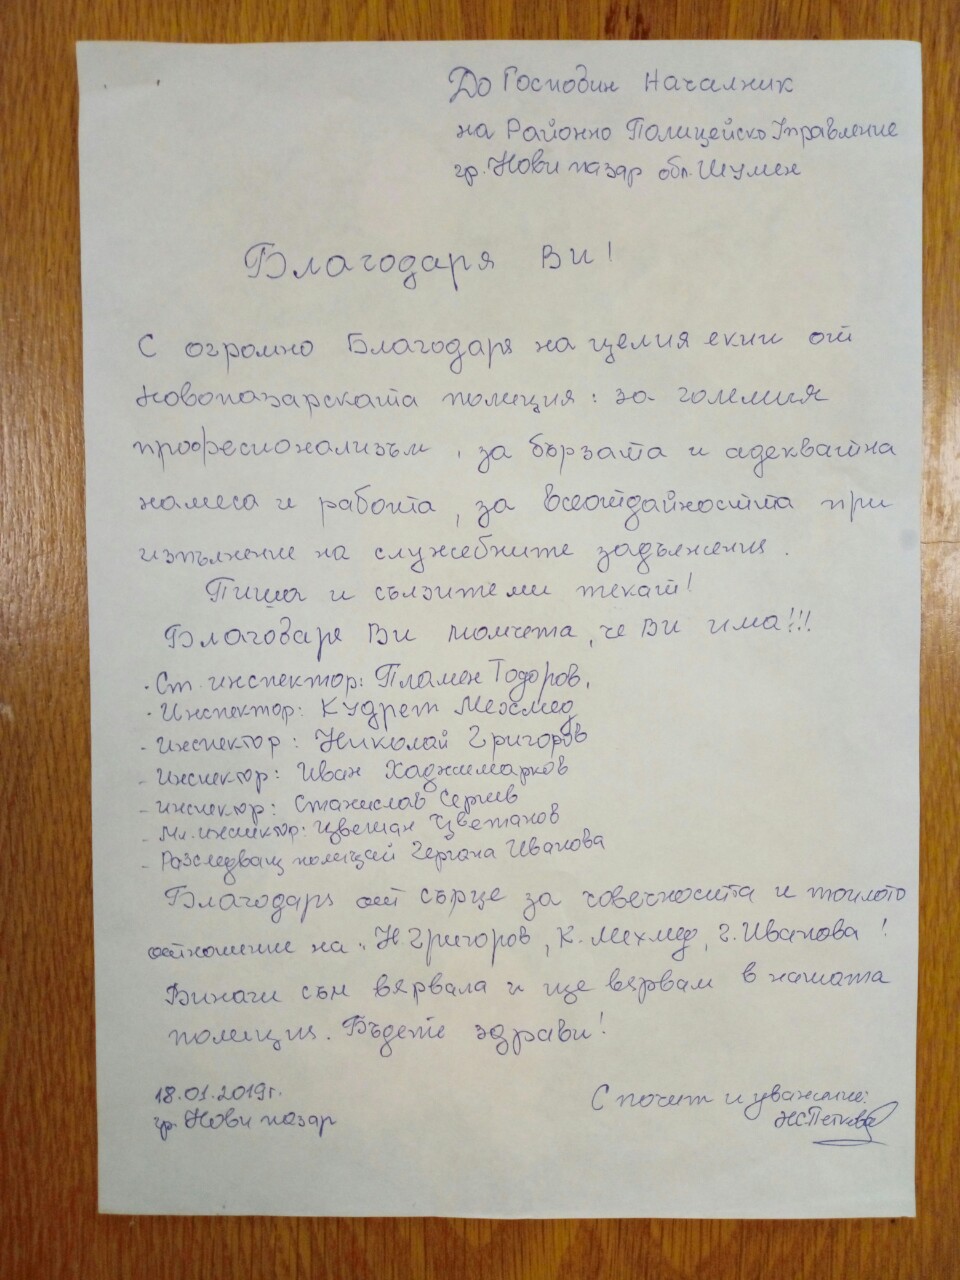 До Господин Началник
на Районно Полицейско Управление
гр. Нови пазар обл. Шумен
Благодаря Ви!
С огромно Благодаря на целия екип от
Новопазарската полиция: за големия
професионализъм, за бързата и адекватна
намеса и работа, за всеотдайността при
изпълнение на служебните задължения.
Пиша и сълзите ми текат!
Благодаря Ви момчета, че Ви има!!!
· Ст. инспектор: Пламен Тодоров,
· Инспектор: Кудрет Мехмед
- инспектор: Николай Григоров
- инспектор: Иван Хаджимарков
- инспектор: Станислав Сергиев
- Мл. инспектор: Цветан Цветанов
- Разследващ полицай Гергана Иванова
Благодаря от сърце за човечността и топлото
отношение на: Н. Григоров, К. Мехмед, Г. Иванова!
Винаги съм вярвала и ще вярвам в нашата
полиция. Бъдете здрави!
18.01.2019г.
гр. Нови пазар
С почит и уважение:
Петкова